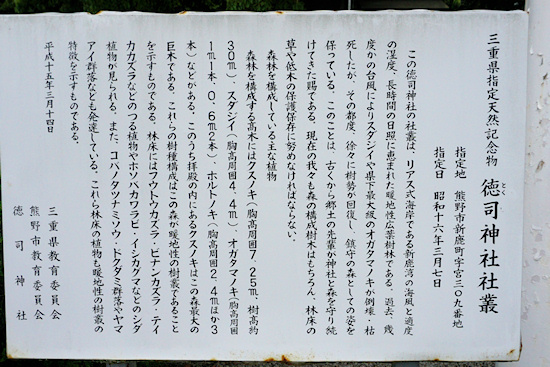 三重県指定天然記念物 徳司神社社叢
とくし
指定地 熊野市新鹿町字宮三〇九番地
指定日 昭和十六年三月七日
この徳司神社の社叢は、リアス式海岸である新鹿湾の海風と適度
の湿度、長時間の日照に恵まれた暖地性広葉樹林である。過去、幾
度かの台風によりスダジイや県下最大級のオガタマノキが倒壊・枯
死したが、その都度、徐々に樹勢が回復し、鎮守の森としての姿を
保っている。このことは、古くから郷土の先輩が神社と森を守り続
けてきた賜である。現在の我々も森の構成樹木はもちろん、林床の
草や低木の保護保存に努めなければならない。
森林を構成している主な植物
森林を構成する高木にはクスノキ(胸高周囲7.25m、樹高約
30m)、スダジイ(胸高周囲4.4m)、オガタマノキ(胸高周囲
1m1本、0.6m2本)、ホルトノキ(胸高周囲2.4mほか3
本)などがある。このうち拝殿の内にあるクスノキはこの森最大の
巨木である。これらの樹種構成はこの森が暖地性の樹叢であること
を示すものである。林床にはフウトウカズラ・ビナンカズラ・テイ
カカズラなどのつる植物やホソバカナワラビ・イシカグマなどのシダ
植物が見られる。また、コバノタツナミソウ・ドクダミ群落やヤマ
アイ群落なども発達している。これら林床の植物も暖地性の樹叢の
特徴を示すものである。
平成十五年三月十四日
三重県教育委員会
熊野市教育委員会
徳司神社